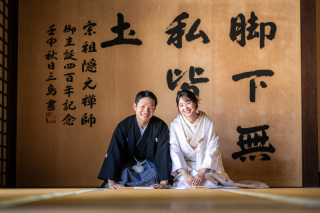 脚下無
私皆
土
宗祖隠元禅師
御生誕四百年記念
壬申秋日三島書